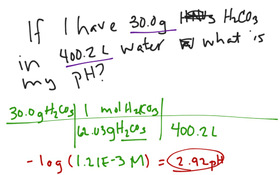 If I have 30.0g H₂CO₃
in 400.2L water what is
my pH?
30.0g H₂CO₃ | 1 mol H₂CO₃
62.03g H₂CO₃ | 400.2L
-log (1.21E-3 M) = 2.92 pH